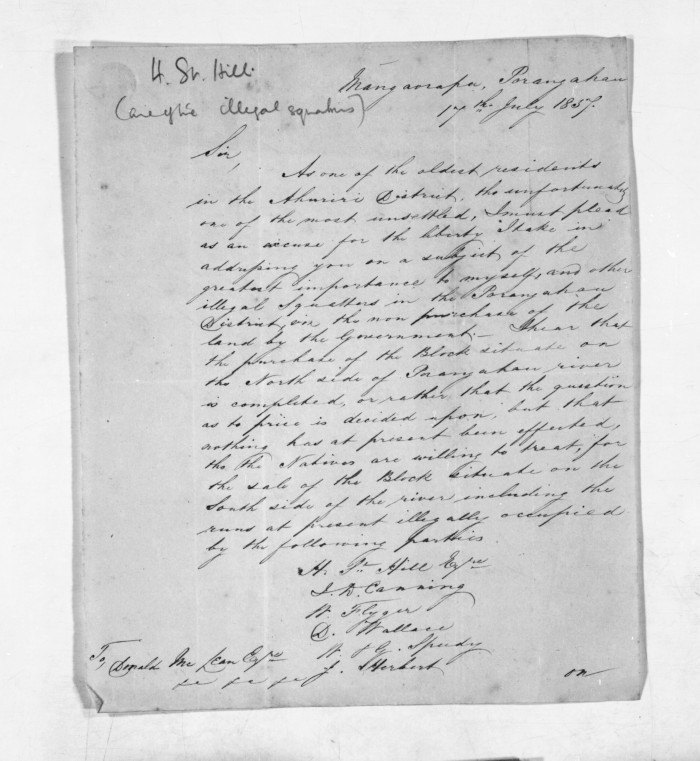 H. St. Hill.
(One of the illegal squatters)
Mangaorapa, Porangahau
17th July 1857.
Sir,
As one of the oldest residents
in the Ahuriri District, tho unfortunately
one of the most unsettled, I must plead
as an excuse for the liberty I take in
addressing you on a subject of the
greatest importance to myself, and other
illegal Squatters in the Porangahau
District, viz the non purchase of the
land by the Government. – I hear that
the purchase of the Block situate on
the North side of Porangahau river
is completed, or rather that the question
as to price is decided upon, but that
nothing has at present been effected,
tho The Natives are willing to treat, for
the sale of the Block situate on the
South side of the river including the
runs at present illegally occupied
by the following parties.
H. St. Hill Esqre
J. D. Canning
W. Flyger
D. Wallace
W. & G. Speedy
J. Herbert
To, Donald McLean Esqre
on